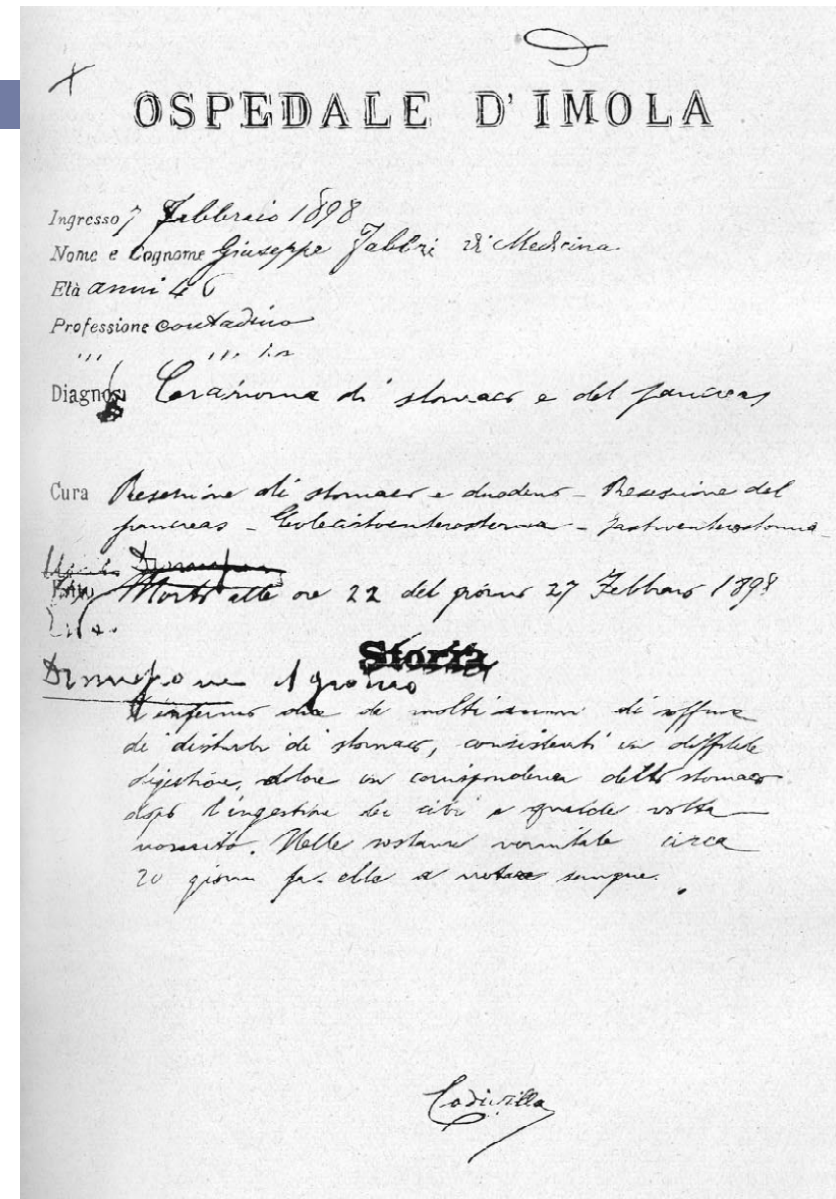 OSPEDALE D'IMOLA
Ingresso 7 Febbraio 1898
Nome e Cognome Giuseppe Fabbri di Medicina
Età anni 46
Professione contadino
Diagnosi Carcinoma di stomaco e del pancreas
Cura Resezione di stomaco e duodeno - Resezione del
pancreas - Colecistoenterostomia - Gastroenterostomia -
Esito Morto alle ore 22 del giorno 27 Febbraio 1898
Storia
il giorno
L'infermo dice da molti anni di soffrire
di disturbi di stomaco, consistenti in difficile
digestione, dolore in corrispondenza dello stomaco
dopo l'ingestione dei cibi e qualche volta
vomito. Nelle sostanze vomitate circa
20 giorni fa ebbe a notare sangue.
Codivilla